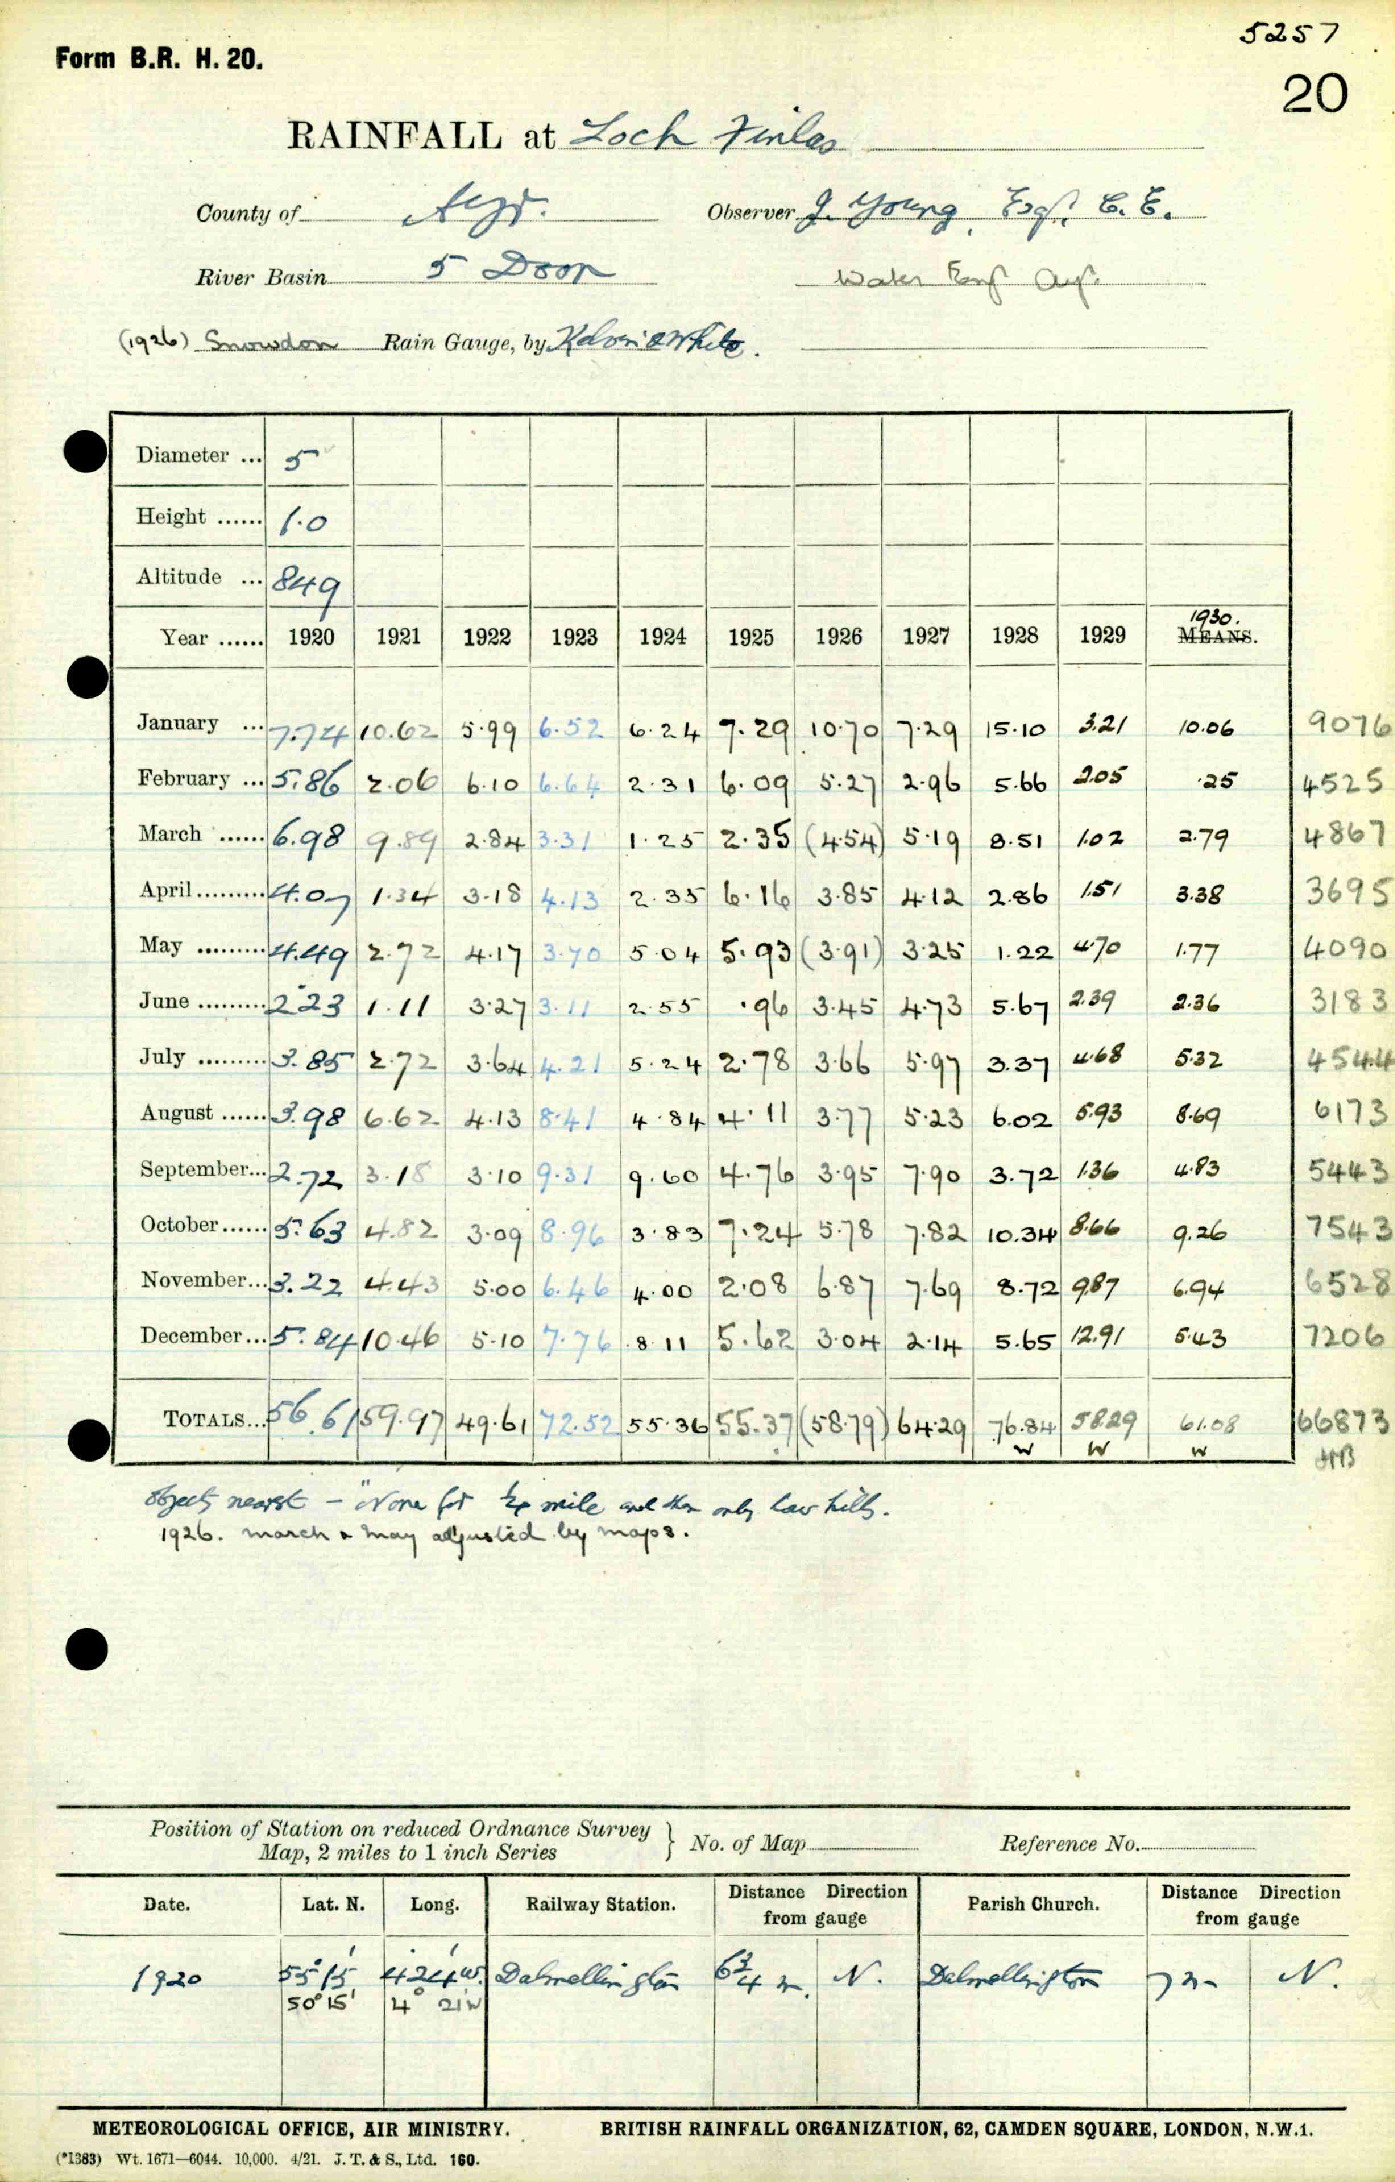 5257
Form B.R. H. 20.
20
RAINFALL at Loch Finlas
County of Ayr. Observer J. Young, Esq., C. E.
River Basin 5 Doon Water Engr Ayr.
(1926) Snowdon Rain Gauge, by Kelvin & White.
Diameter ... 5
Height ...... 1.0
Altitude ... 849
1930.
Year ...... 1920 1921 1922 1923 1924 1925 1926 1927 1928 1929 MEANS.
January ... 7.74 10.62 5.99 6.52 6.24 7.29 10.70 7.29 15.10 3.21 10.06 9076
February ... 5.86 2.06 6.10 6.64 2.31 6.09 5.27 2.96 5.66 2.05 .25 4525
March ...... 6.98 9.89 2.84 3.31 1.25 2.35 (4.54) 5.19 8.51 1.02 2.79 4867
April ......... 4.07 1.34 3.18 4.13 2.35 6.16 3.85 4.12 2.86 1.51 3.38 3695
May ......... 4.49 2.72 4.17 3.70 5.04 5.93 (3.91) 3.25 1.22 4.70 1.77 4090
June ......... 2.23 1.11 3.27 3.11 2.55 .96 3.45 4.73 5.67 2.39 2.36 3183
July ......... 3.85 2.72 3.64 4.21 5.24 2.78 3.66 5.97 3.37 4.68 5.32 4544
August ...... 3.98 6.62 4.13 8.41 4.84 4.11 3.77 5.23 6.02 5.93 8.69 6173
September... 2.72 3.18 3.10 9.31 9.60 4.76 3.95 7.90 3.72 1.36 4.83 5443
October...... 5.63 4.82 3.09 8.96 3.83 7.24 5.78 7.82 10.34 8.66 9.26 7543
November... 3.22 4.43 5.00 6.46 4.00 2.08 6.87 7.69 8.72 9.87 6.94 6528
December... 5.84 10.46 5.10 7.76 8.11 5.62 3.04 2.14 5.65 12.91 5.43 7206
TOTALS... 56.61 59.97 49.61 72.52 55.36 55.37 (58.79) 64.29 76.84 58.29 61.08 66873
W W W
Objects nearest - "None for 1/4 mile and then only low hills.
1926. March & May adjusted by maps.
Position of Station on reduced Ordnance Survey
Map, 2 miles to 1 inch Series } No. of Map Reference No.
Date. Lat. N. Long. Railway Station. Distance Direction from gauge Parish Church. Distance Direction from gauge
1920 55° 15' 4° 24' W. Dalmellington 6 3/4 m. N. Dalmellington 7 m N.
50° 15' 4° 21 W
METEOROLOGICAL OFFICE, AIR MINISTRY. BRITISH RAINFALL ORGANIZATION, 62, CAMDEN SQUARE, LONDON, N.W.1.
(*1383) Wt. 1671—6044. 10,000. 4/21. J. T. & S., Ltd. 160.